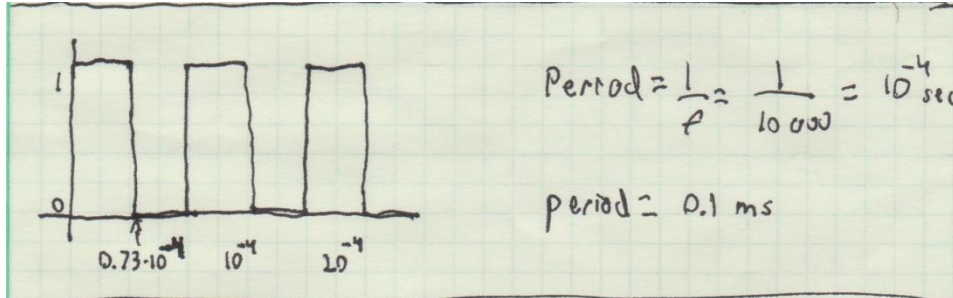 1
0
0.73·10⁻⁴ 10⁻⁴ 20⁻⁴
Period = 1/f = 1/10 000 = 10⁻⁴ sec
period = 0.1 ms